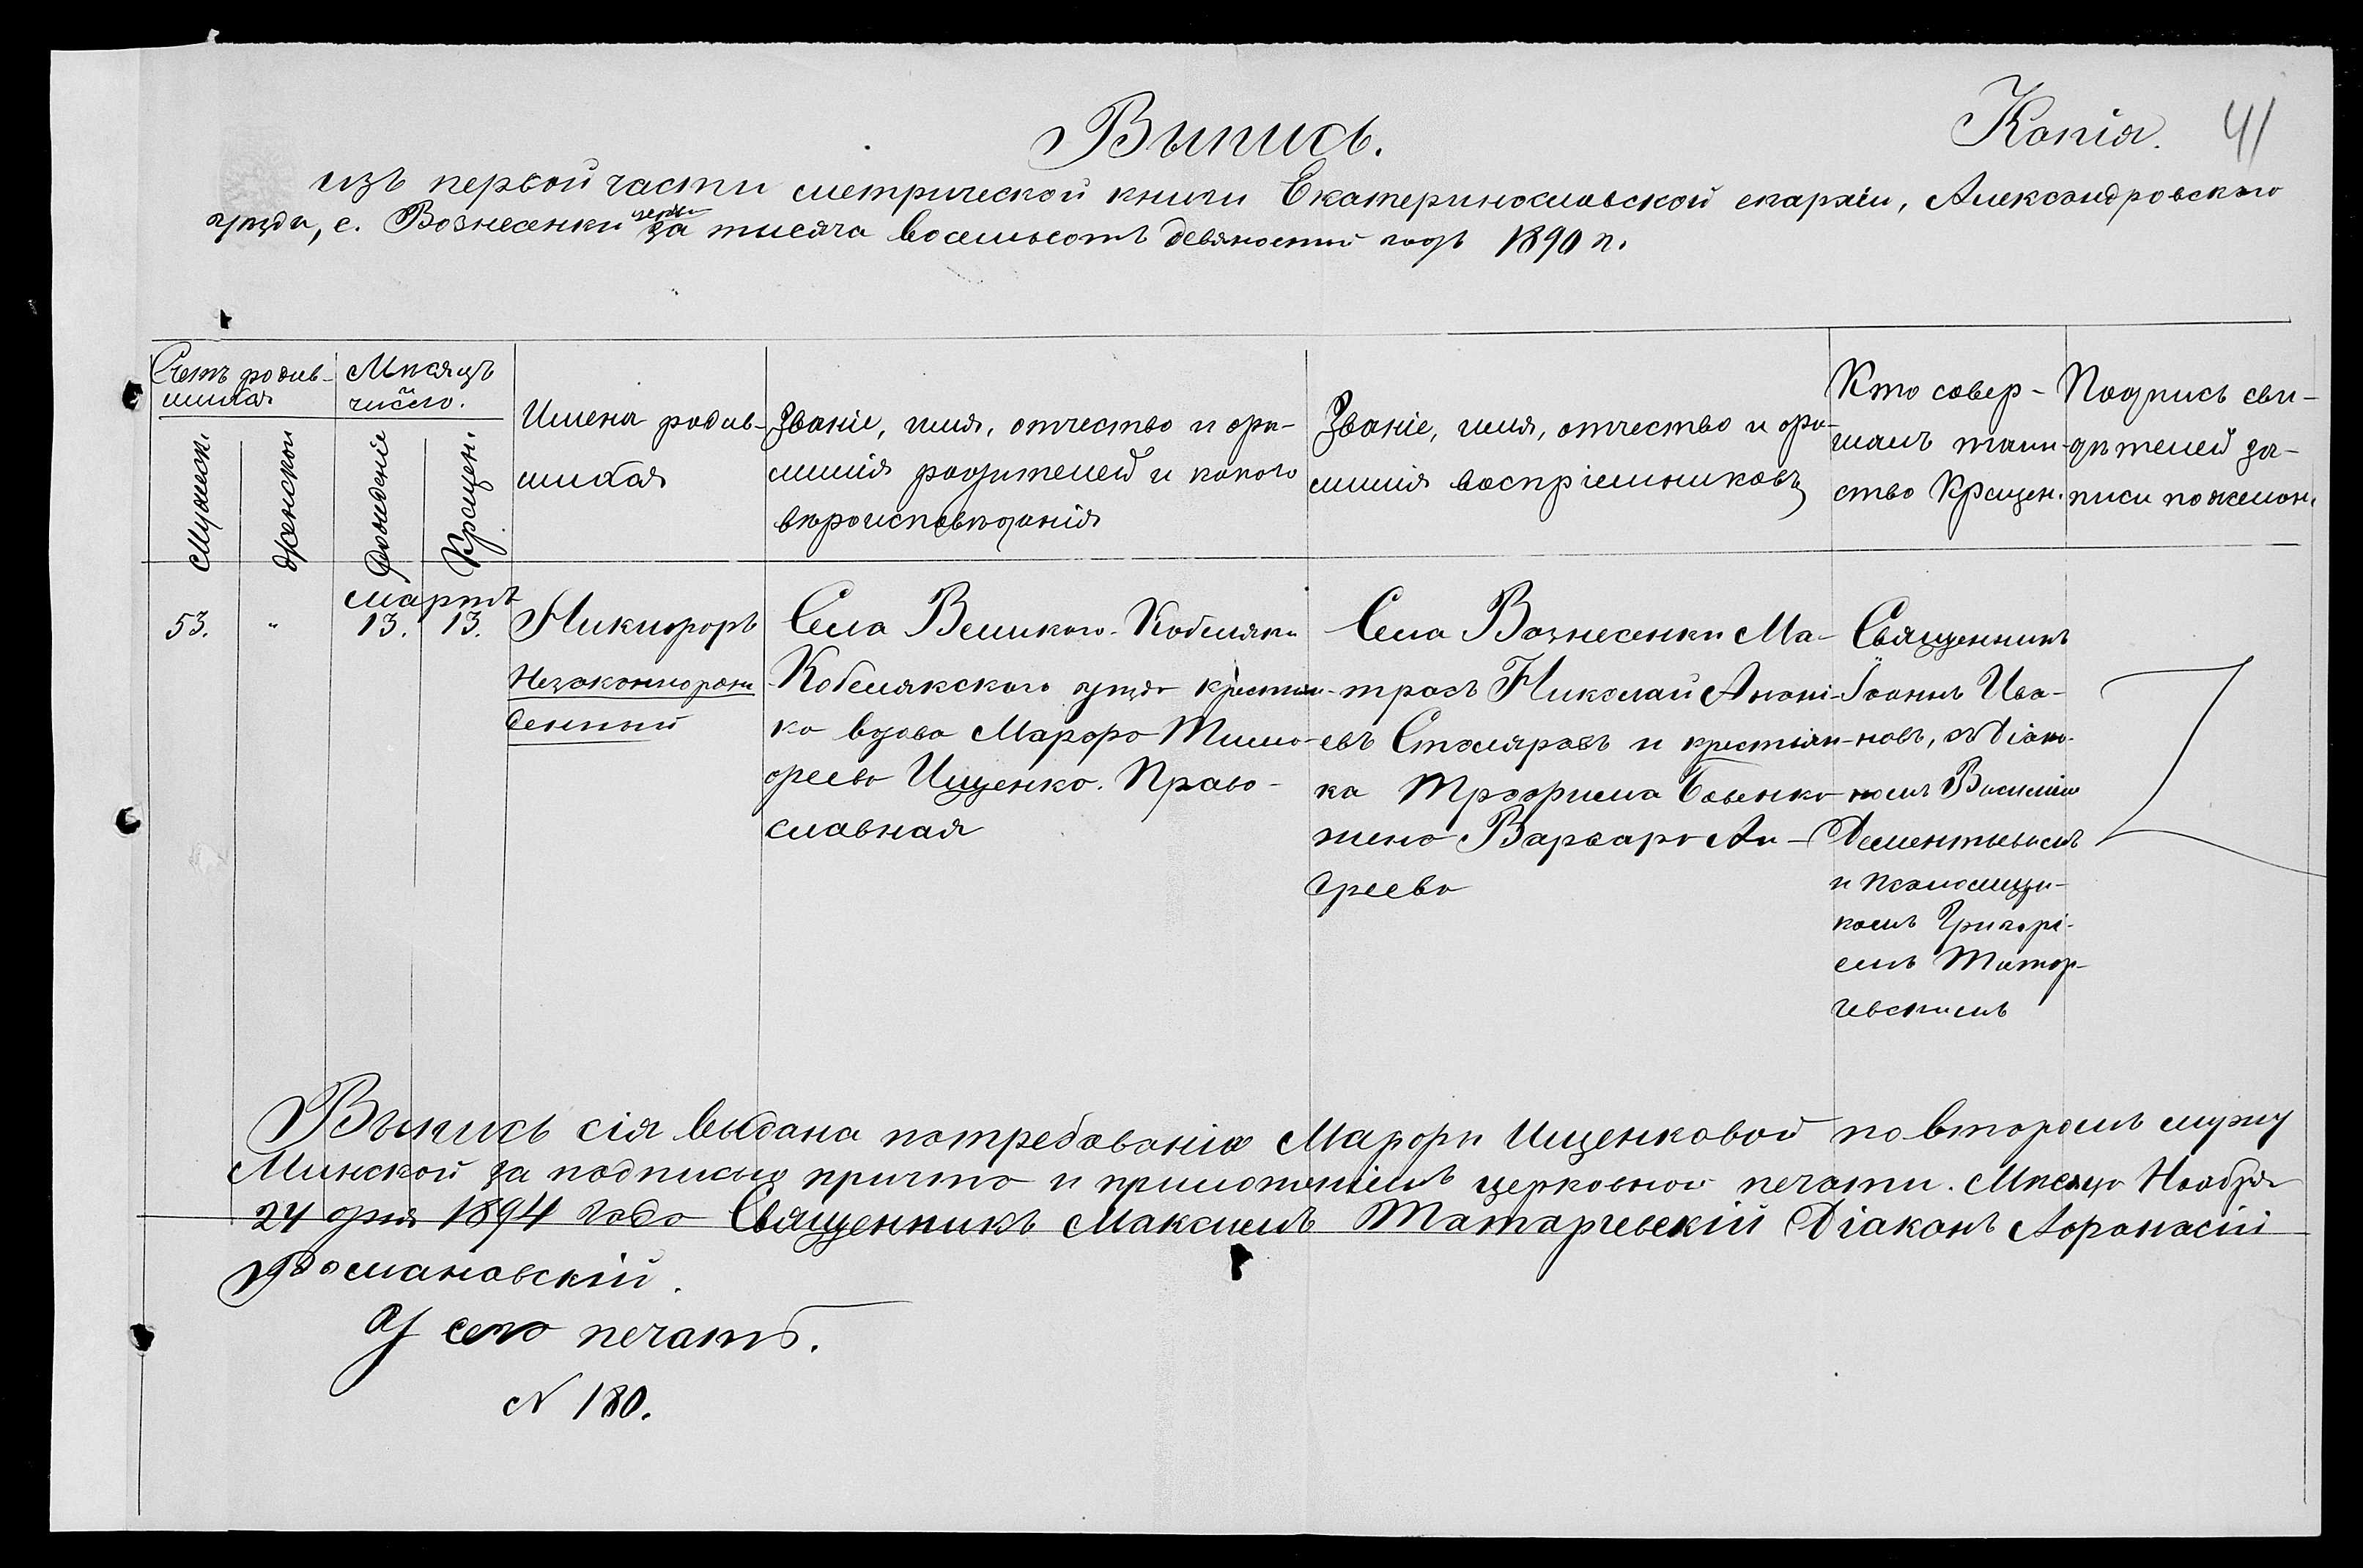 Копія. 41
Выпись.
изъ первой части метрической книги Екатеринославской епархіи, Александровскаго
уѣзда, с. Вознесенки за тысяча восемьсотъ девяностый годъ 1890 г.
Счетъ родив-
шихся
Мужеск.
Женскои
Мѣсяцъ
и
число.
Рожденіе
Крещен.
Имена родив-
шихся
Званіе, имя, отчество и фа-
милія родителей и какого
вѣроисповѣданія
Званіе, имя, отчество и фа-
милія воспріемниковъ
Кто совер-
шалъ таин-
ство Крещен.
Подпись сви-
дѣтелей за-
писи по желан.
мартъ
53. " 13. 13.
Никифоръ
Незаконнорож
денный
Села Великого-Кобеляки
Кобелякскаго уѣзда крестьян-
ка вдова Марфа Тимо-
феева Ищенко. Право-
славная
Села Вознесенки Ма-
тросъ Николай Анані-
евъ Столяровъ и крестьян-
ка Трофима Бабенко
жена Варвара Ан-
дреева
Священникъ
Іоаннъ Ива-
новъ, съ Діако-
номъ Василіемъ
Дементьевымъ
и псаломщи-
комъ Григорі-
емъ Татар-
чевскимъ
Выпись сія выдана по требованію Марфы Ищенковой по второмъ мужу
Минской за подписью причта и приложеніемъ церковной печати. Мѣсяца Ноября
24 дня 1894 года Священникъ Максимъ Татарчевскій Діаконъ Афанасій
Романовскій.
У сего печать.
N 180.